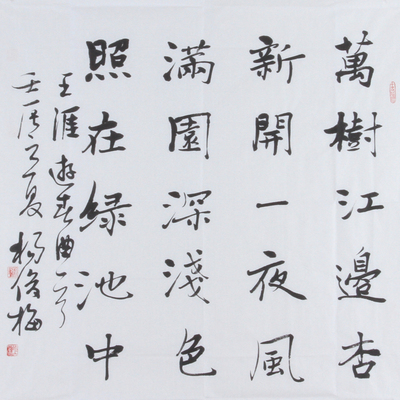 萬樹江邊杏
新開一夜風
滿園深淺色
照在绿池中
王涯遊春曲一首
壬辰之夏 楊俊梅